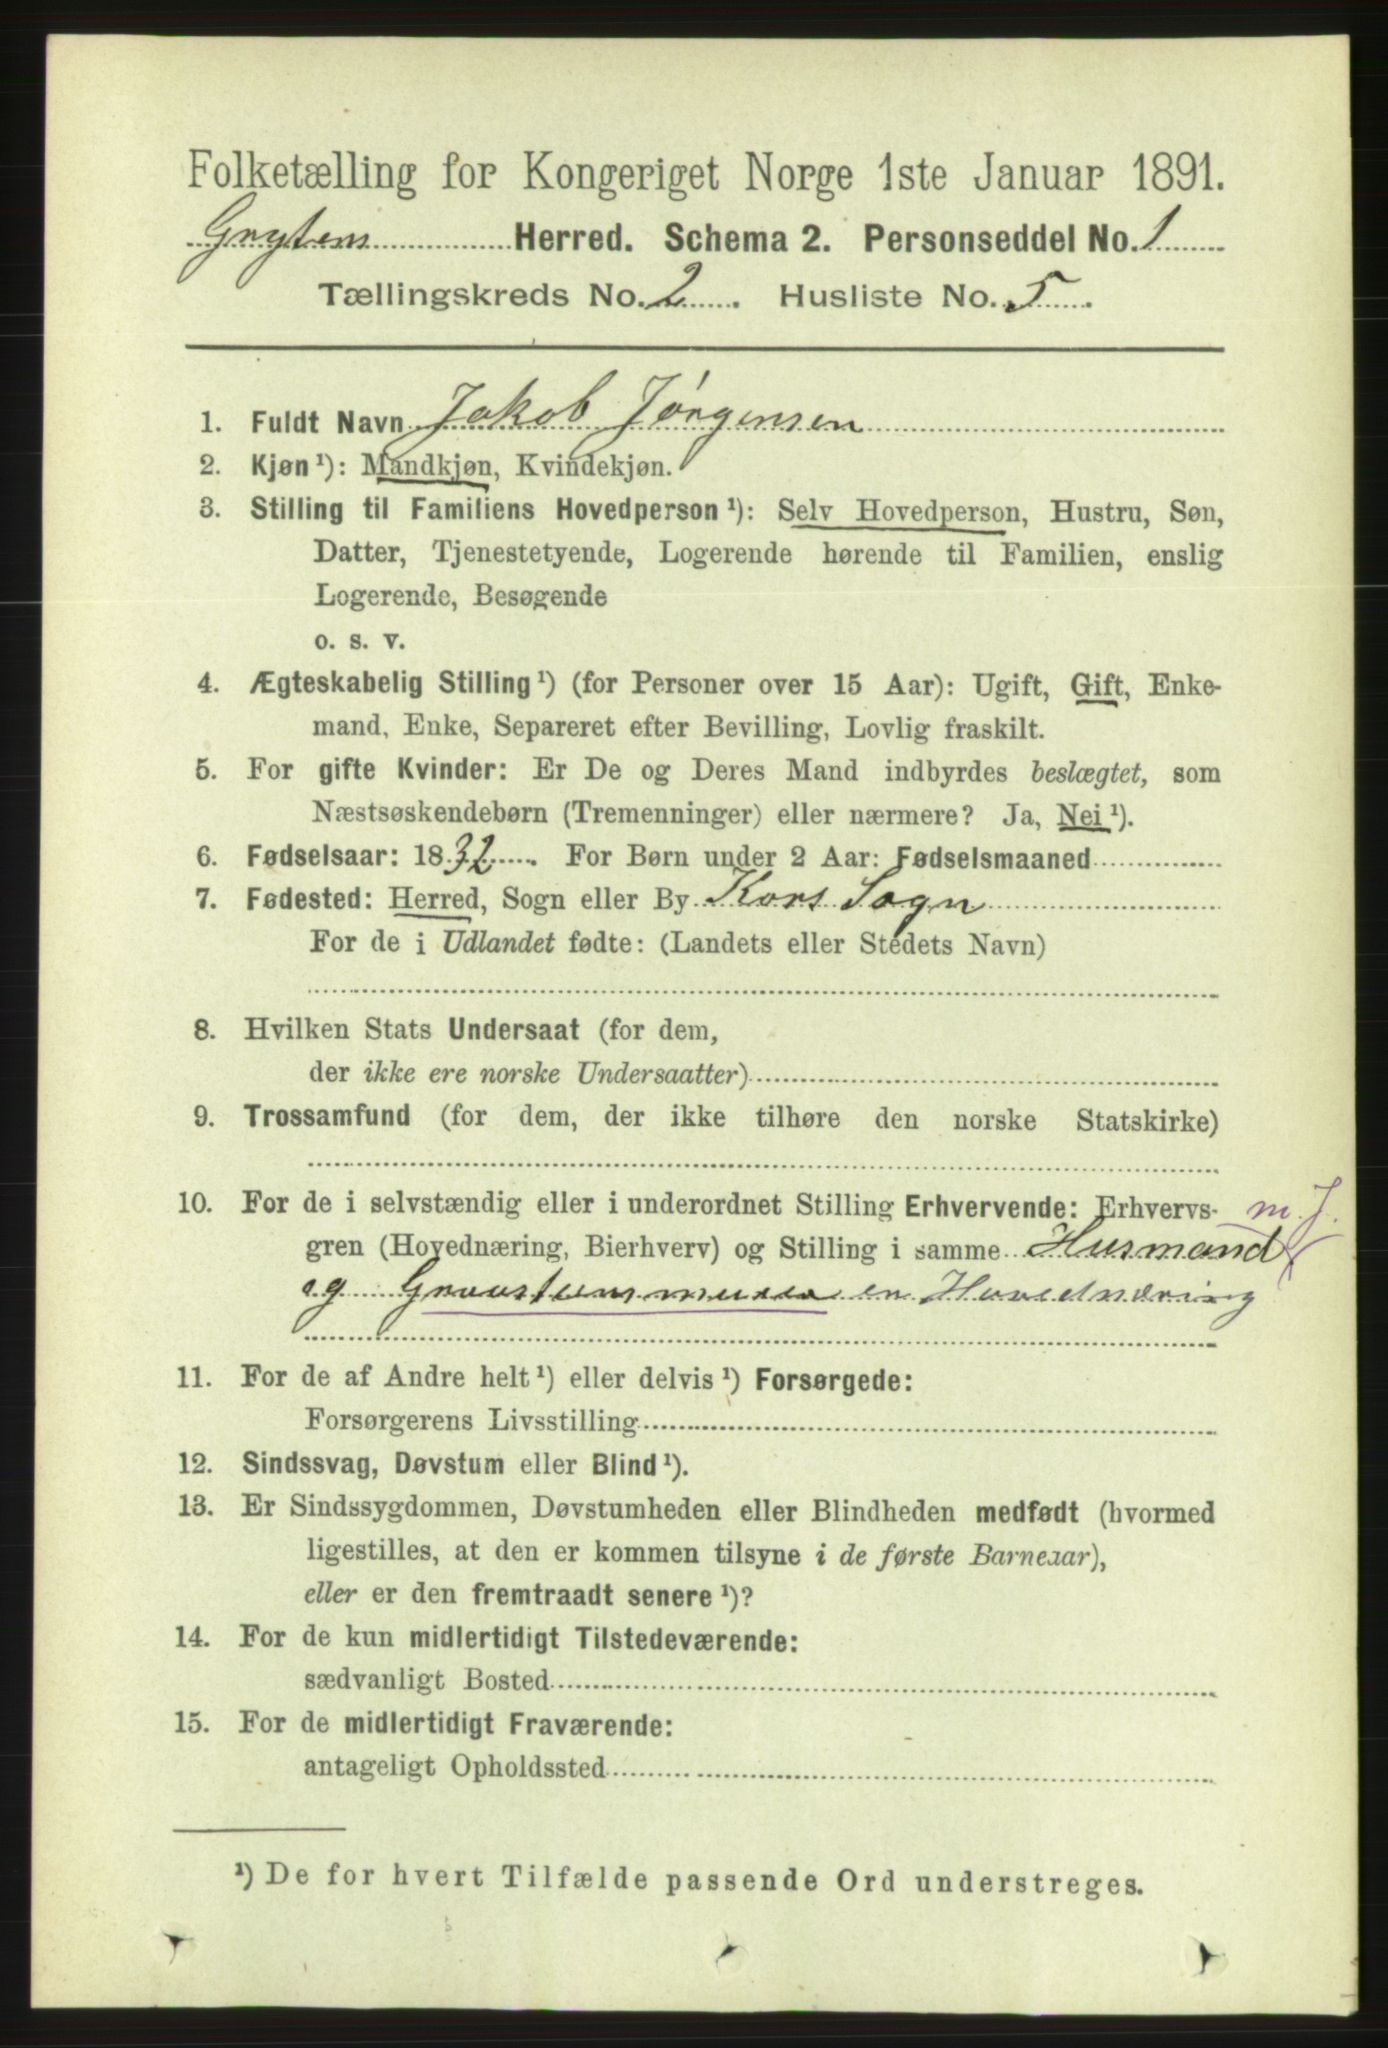 Folketælling for Kongeriget Norge 1ste Januar 1891.
Grytens Herred. Schema 2. Personseddel No. 1
Tællingskreds No. 2. Husliste No. 5.
1. Fuldt Navn Jakob Jørgensen
2. Kjøn ¹): Mandkjøn, Kvindekjøn.
3. Stilling til Familiens Hovedperson ¹): Selv Hovedperson, Hustru, Søn,
Datter, Tjenestetyende, Logerende hørende til Familien, enslig
Logerende, Besøgende
o. s. v.
4. Ægteskabelig Stilling ¹) (for Personer over 15 Aar): Ugift, Gift, Enke-
mand, Enke, Separeret efter Bevilling, Lovlig fraskilt.
5. For gifte Kvinder: Er De og Deres Mand indbyrdes beslægtet, som
Næstsøskendebørn (Tremenninger) eller nærmere? Ja, Nei ¹).
6. Fødselsaar: 1832. For Børn under 2 Aar: Fødselsmaaned
7. Fødested: Herred, Sogn eller By Kors Sogn
For de i Udlandet fødte: (Landets eller Stedets Navn)
8. Hvilken Stats Undersaat (for dem,
der ikke ere norske Undersaatter)
9. Trossamfund (for dem, der ikke tilhøre den norske Statskirke)
10. For de i selvstændig eller i underordnet Stilling Erhvervende: Erhvervs- m. J.
gren (Hovednæring, Bierhverv) og Stilling i samme Husmand
og en Hovednæring
11. For de af Andre helt ¹) eller delvis ¹) Forsørgede:
Forsørgerens Livsstilling
12. Sindssvag, Døvstum eller Blind ¹).
13. Er Sindssygdommen, Døvstumheden eller Blindheden medfødt (hvormed
ligestilles, at den er kommen tilsyne i de første Barneaar),
eller er den fremtraadt senere ¹)?
14. For de kun midlertidigt Tilstedeværende:
sædvanligt Bosted
15. For de midlertidigt Fraværende:
antageligt Opholdssted
¹) De for hvert Tilfælde passende Ord understreges.